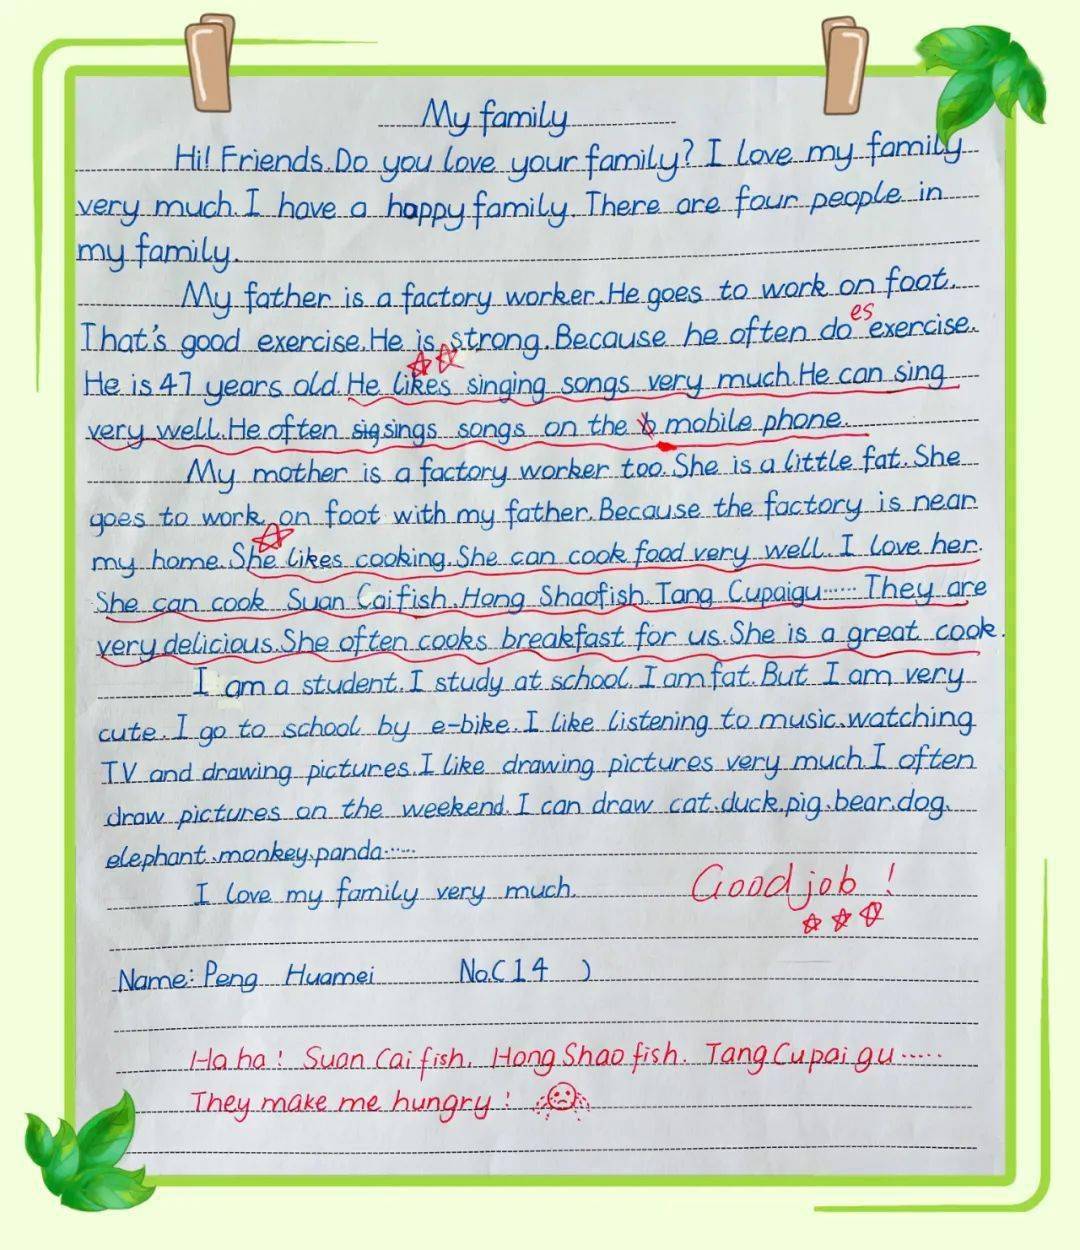 My family
Hi! Friends.Do you love your family? I love my family
very much.I have a happy family.There are four people in
my family.
My father is a factory worker.He goes to work on foot.
es
That's good exercise.He is strong.Because he often do exercise.
He is 47 years old.He likes singing songs very much.He can sing
very well.He often sigsings songs on the b mobile phone.
My mother is a factory worker too.She is a little fat.She
goes to work on foot with my father.Because the factory is near
my home.She likes cooking.She can cook food very well.I love her.
She can cook Suan Caifish.Hong Shaofish.Tang Cupaigu......They are
very delicious.She often cooks breakfast for us.She is a great cook.
I am a student.I study at school.I am fat.But I am very
cute.I go to school by e-bike.I like listening to music.watching
TV and drawing pictures.I like drawing pictures very much.I often
draw pictures on the weekend.I can draw cat.duck.pig.bear.dog.
elephant.monkey.panda......
I love my family very much.
Good job!
Name: Peng Huamei No.(14 )
Ha ha! Suan Cai fish. Hong Shao fish. Tang Cupai gu.....
They make me hungry!